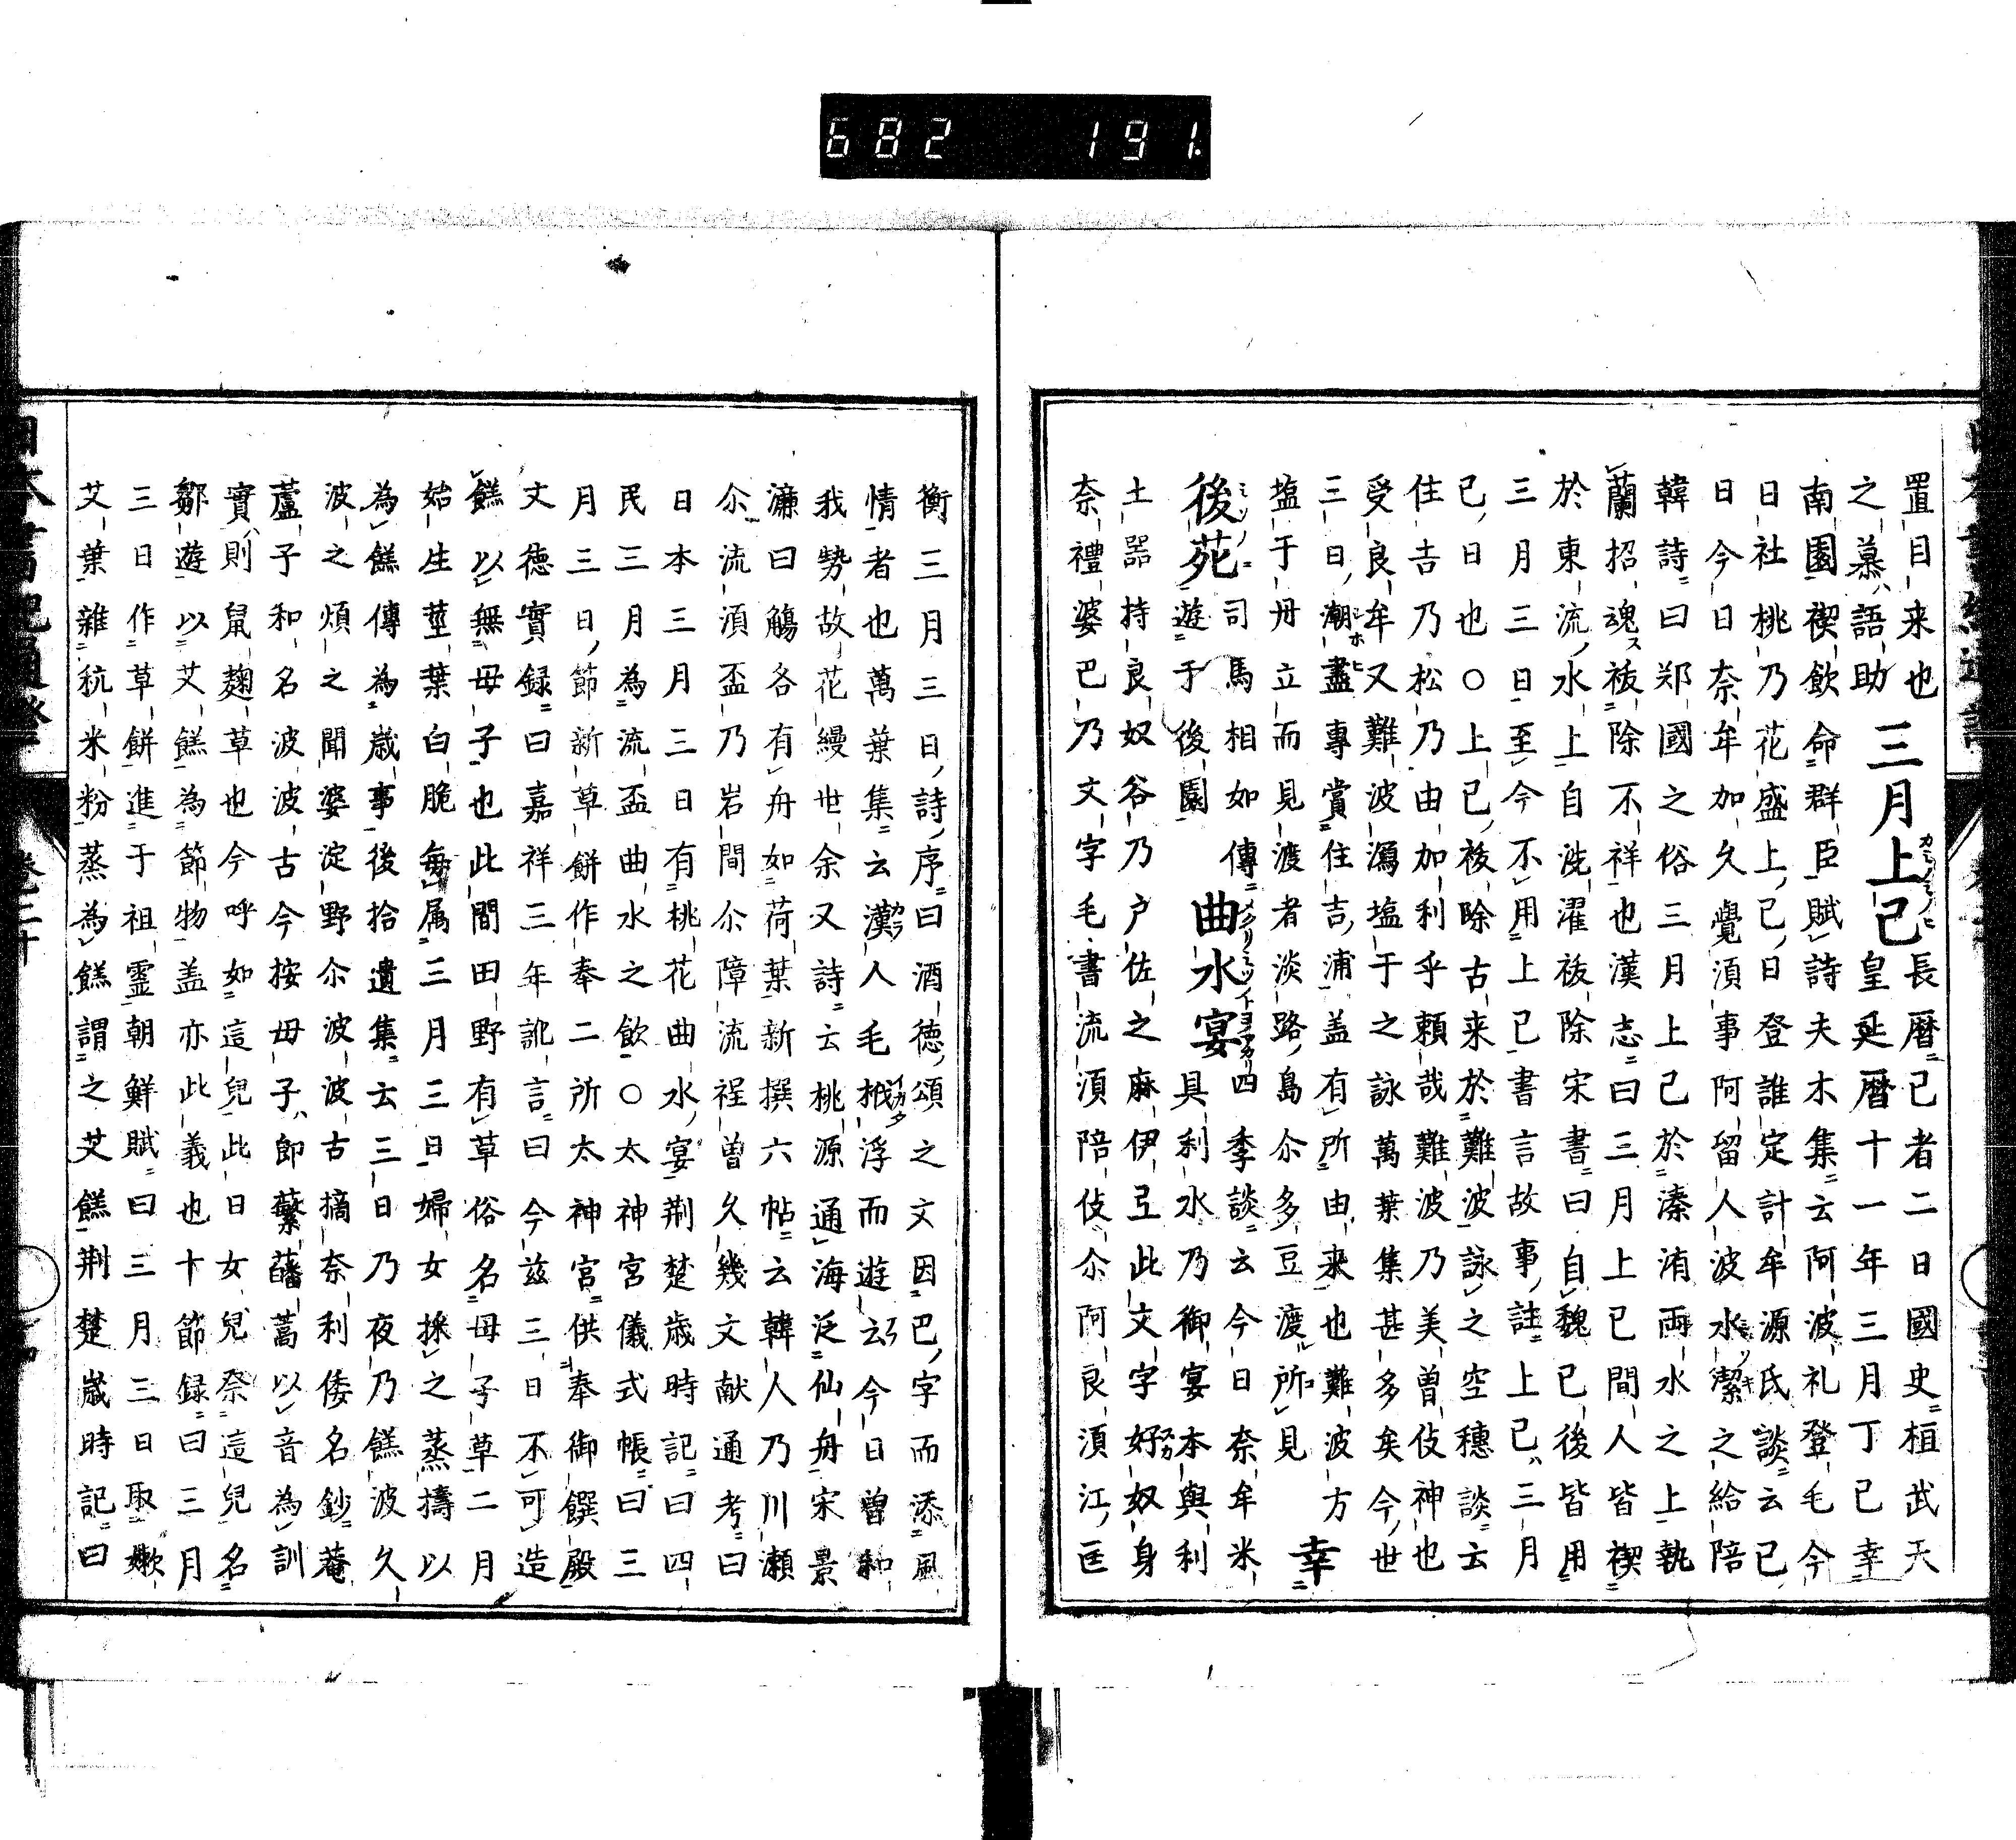 682 191
置目来也三月上巳長暦己者二日國史桓武天
之慕語助皇延暦十一年三月丁巳幸
南園禊飲命群臣賦詩夫木集云阿波礼登毛今
日社桃乃花盛上巳日登誰定計牟源氏談云已
日今日奈牟加久覺湏事阿留人波水潔之給陪
韓詩曰郑國之俗三月上己於溱洧兩水之上執
蘭招魂祓除不祥也漢志曰三月上巳間人皆禊
於東流水上自洗濯祓除宋書曰自魏已後皆用
三月三日至今不用上巳書言故事註上巳三月
巳日也〇上巳祓除古来於難波詠之空穗談云
住吉乃松乃由加利乎頼哉難波乃美曽伎神也
受良牟又難波潟塩于之詠萬葉集甚多矣今世
三日潮盡專賞住吉浦盖有所由来也難波方
塩于毋立而見渡者淡路島尒多豆渡所見幸
後苑司馬相如傳曲水宴四季談云今日奈牟米
遊于後園具利水乃御宴本與利
土器持良奴谷乃户佐之麻伊弖此文字好奴身
奈禮婆巴乃文字毛書流湏陪伎尒阿良湏江匡
衡三月三日詩序曰酒德頌之文因巴字而添風
情者也萬葉集云漢人毛栰浮而遊云今日曽和
我勢故花縵世余又詩云桃源通海泛仙舟宋景
濂曰觴各有舟如荷葉新撰六帖云韓人乃川瀬
尒流湏盃乃岩間尒障流程曽久幾文献通考曰
日本三月三日有桃花曲水宴荆楚歳時記曰四
民三月為流盃曲水之飲〇太神宮儀式帳曰三
月三日節新草餅作奉二所太神宮供奉御饌殿
文德實録曰嘉祥三年訛言曰今茲三日不可造
餻以無母子也此間田野有草俗名母子草二月
始生莖葉白脆每属三月三日婦女採之蒸擣以
為餻傳為歳事後拾遺集云三日乃夜乃餻波久
波之煩之聞婆淀野尒波波古摘奈利倭名鈔菴
蘆子和名波波古今按毋子即蘩皤蒿以音為訓
實則鼠麹草也今呼如這兒此日女兒祭這兒名
鄒遊以艾餻為節物盖亦此義也十節録曰三月
三日作草餅進于祖霊朝鮮賦曰三月三日取嫩
艾葉雜秔米粉蒸為餻謂之艾餻荆楚歳時記曰